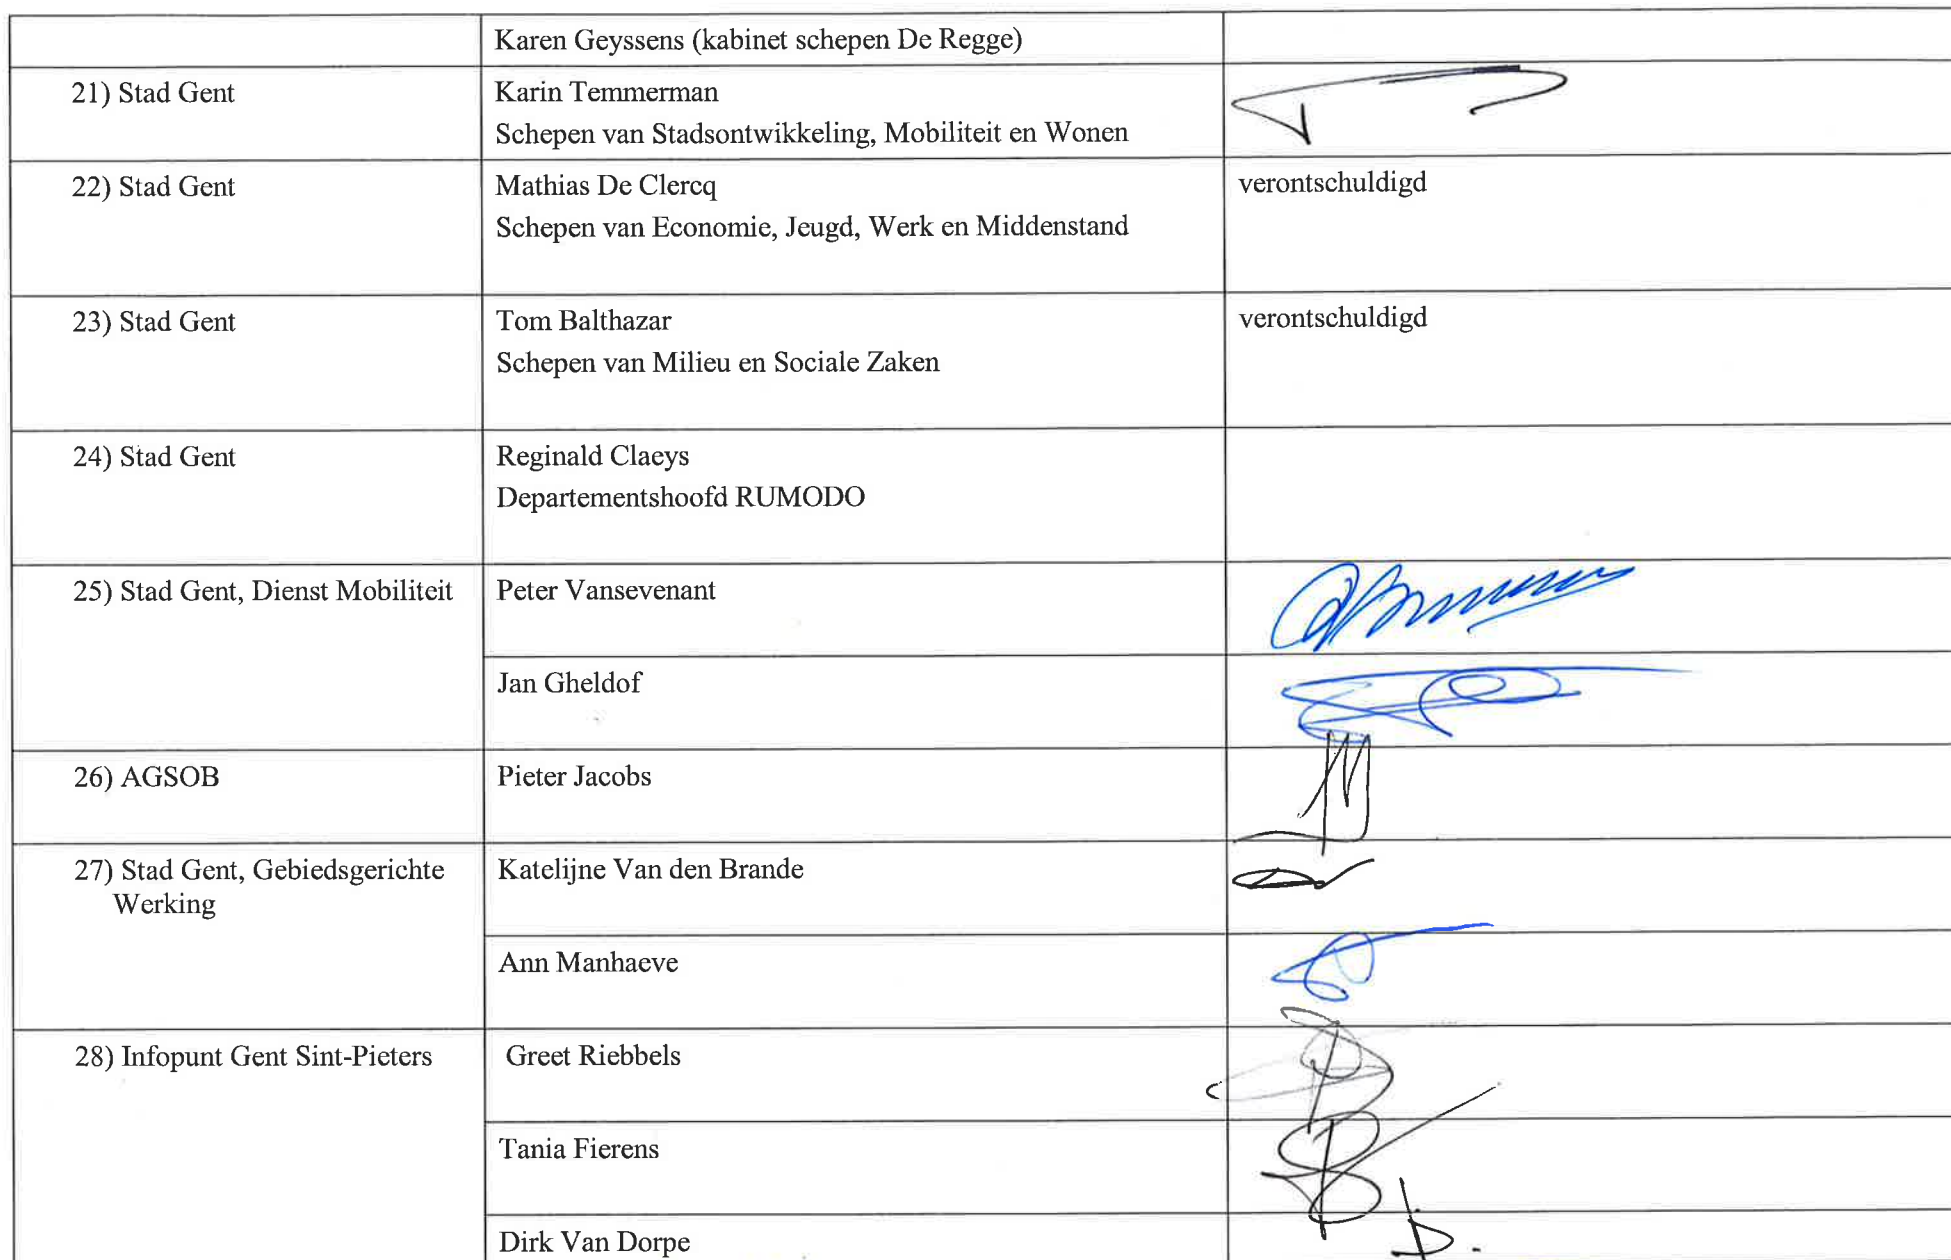 Karen Geyssens (kabinet schepen De Regge)
21) Stad Gent
Karin Temmerman
Schepen van Stadsontwikkeling, Mobiliteit en Wonen
22) Stad Gent
Mathias De Clercq
verontschuldigd
Schepen van Economie, Jeugd, Werk en Middenstand
23) Stad Gent
Tom Balthazar
verontschuldigd
Schepen van Milieu en Sociale Zaken
24) Stad Gent
Reginald Claeys
Departementshoofd RUMODO
25) Stad Gent, Dienst Mobiliteit
Peter Vansevenant
Jan Gheldof
26) AGSOB
Pieter Jacobs
27) Stad Gent, Gebiedsgerichte
Werking
Katelijne Van den Brande
Ann Manhaeve
28) Infopunt Gent Sint-Pieters
Greet Riebbels
Tania Fierens
Dirk Van Dorpe